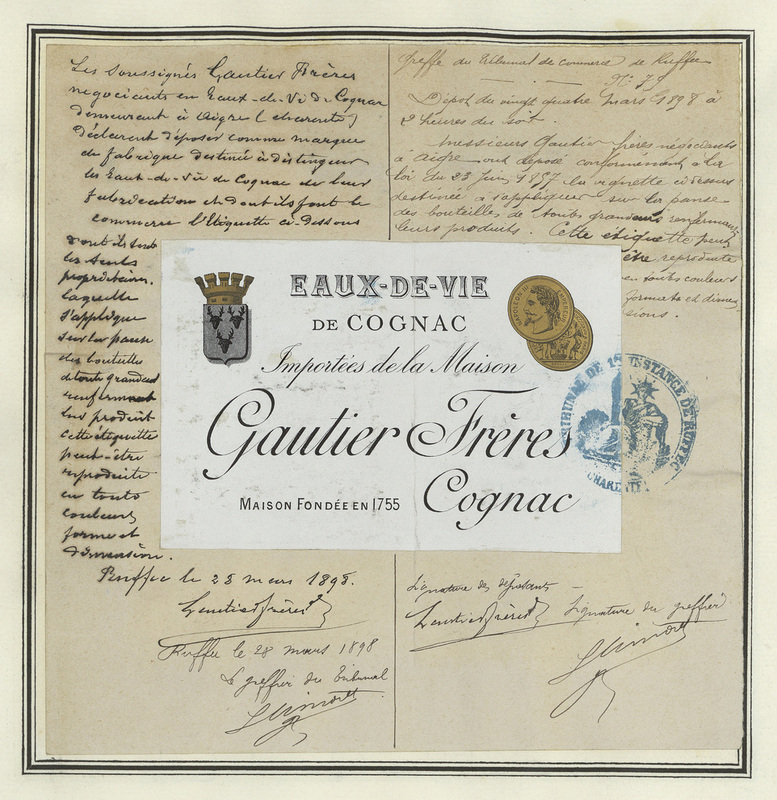 Les soussignés Gautier Frères
négociants en Eaux-de-Vie de Cognac
demeurant à Aigre (Charente)
Déclarent déposer comme marque
de fabrique destinée à distinguer
les Eaux-de-vie de Cognac de leur
fabrication et dont ils font le
commerce l'Etiquette ci-dessous
dont ils sont
les seuls
propriétaires.
laquelle
s'applique
sur la panse
des bouteilles
de toute grandeur
renfermant
leurs produits
cette étiquette
peut-être
reproduite
en toute
couleurs
forme et
dimension.
Ruffec le 28 mars 1898.
Gautier frères
Ruffec le 28 mars 1898
Le greffier du Tribunal
Greffe du Tribunal de commerce de Ruffec
N° 75
Dépôt du vingt quatre mars 1898 à
2 heures du soir.
Messieurs Gautier frères négociants
à Aigre ont déposé conformément à la
loi du 23 Juin 1857 la vignette ci-dessus
destinée à s'appliquer sur la panse
des bouteilles de toutes grandeurs renfermant
leurs produits. Cette étiquette peut
être reproduite
en toutes couleurs
formats et dimen
sions.
EAUX-DE-VIE
DE COGNAC
Importées de la Maison
Gautier Frères
MAISON FONDÉE EN 1755
Cognac
NAPOLEON III
TRIBUNAL DE 1RE INSTANCE DE RUFFEC
CHARENTE
Signature des déposants
Gautier frères
Signature du greffier